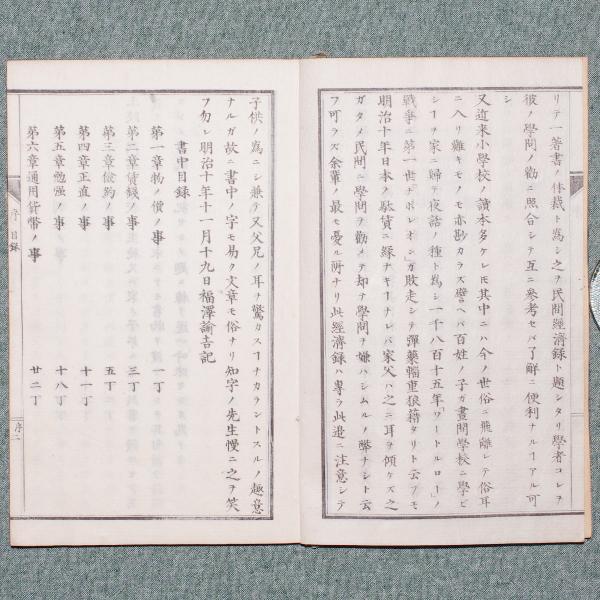 リテ一著書ノ体裁ト爲シ之ヲ民間經濟録ト題シタリ學者コレヲ
彼ノ學問ノ勸ニ照合シテ互ニ參考セバ了解ニ便利ナルヿアル可
シ
又近來小學校ノ讀本多ケレ𪜈其中ニハ今ノ世俗ニ飛離レテ俗耳
ニ入リ難キモノモ亦尠カラズ譬ヘバ百姓ノ子ガ晝間學校ニ學ビ
シヿヲ家ニ歸テ夜話ノ種ト爲シ一千八百十五年「ワートルロー」ノ
戰爭ニ第一世ナポレオン」ガ敗走シテ彈藥輜重狼藉タリト云フモ
明治十年日本ノ駄賃ニ縁ナキヿナレバ家父ハ之ニ耳ヲ傾ケズ之
ガタメ民間ニ學問ヲ勸メテ却テ學問ヲ嫌ハシムルノ弊ナシト云
フ可ラズ余輩ノ最モ憂ル所ナリ此經濟録ハ專ラ此邉ニ注意シテ
子供ノ爲ニシ兼テ又父兄ノ耳ヲ驚カスヿナカラントスルノ趣意
ナルガ故ニ書中ノ字モ易ク文章モ俗ナリ知字ノ先生慢ニ之ヲ笑
フ勿レ明治十年十一月十九日福澤諭吉記
書中目録
第一章物ノ價ノ事 一丁
第二章賃錢ノ事 三丁
第三章儉約ノ事 五丁
第四章正直ノ事 十一丁
第五章勉強ノ事 十八丁
第六章通用貨幣ノ事 廿二丁
序 目録
序二